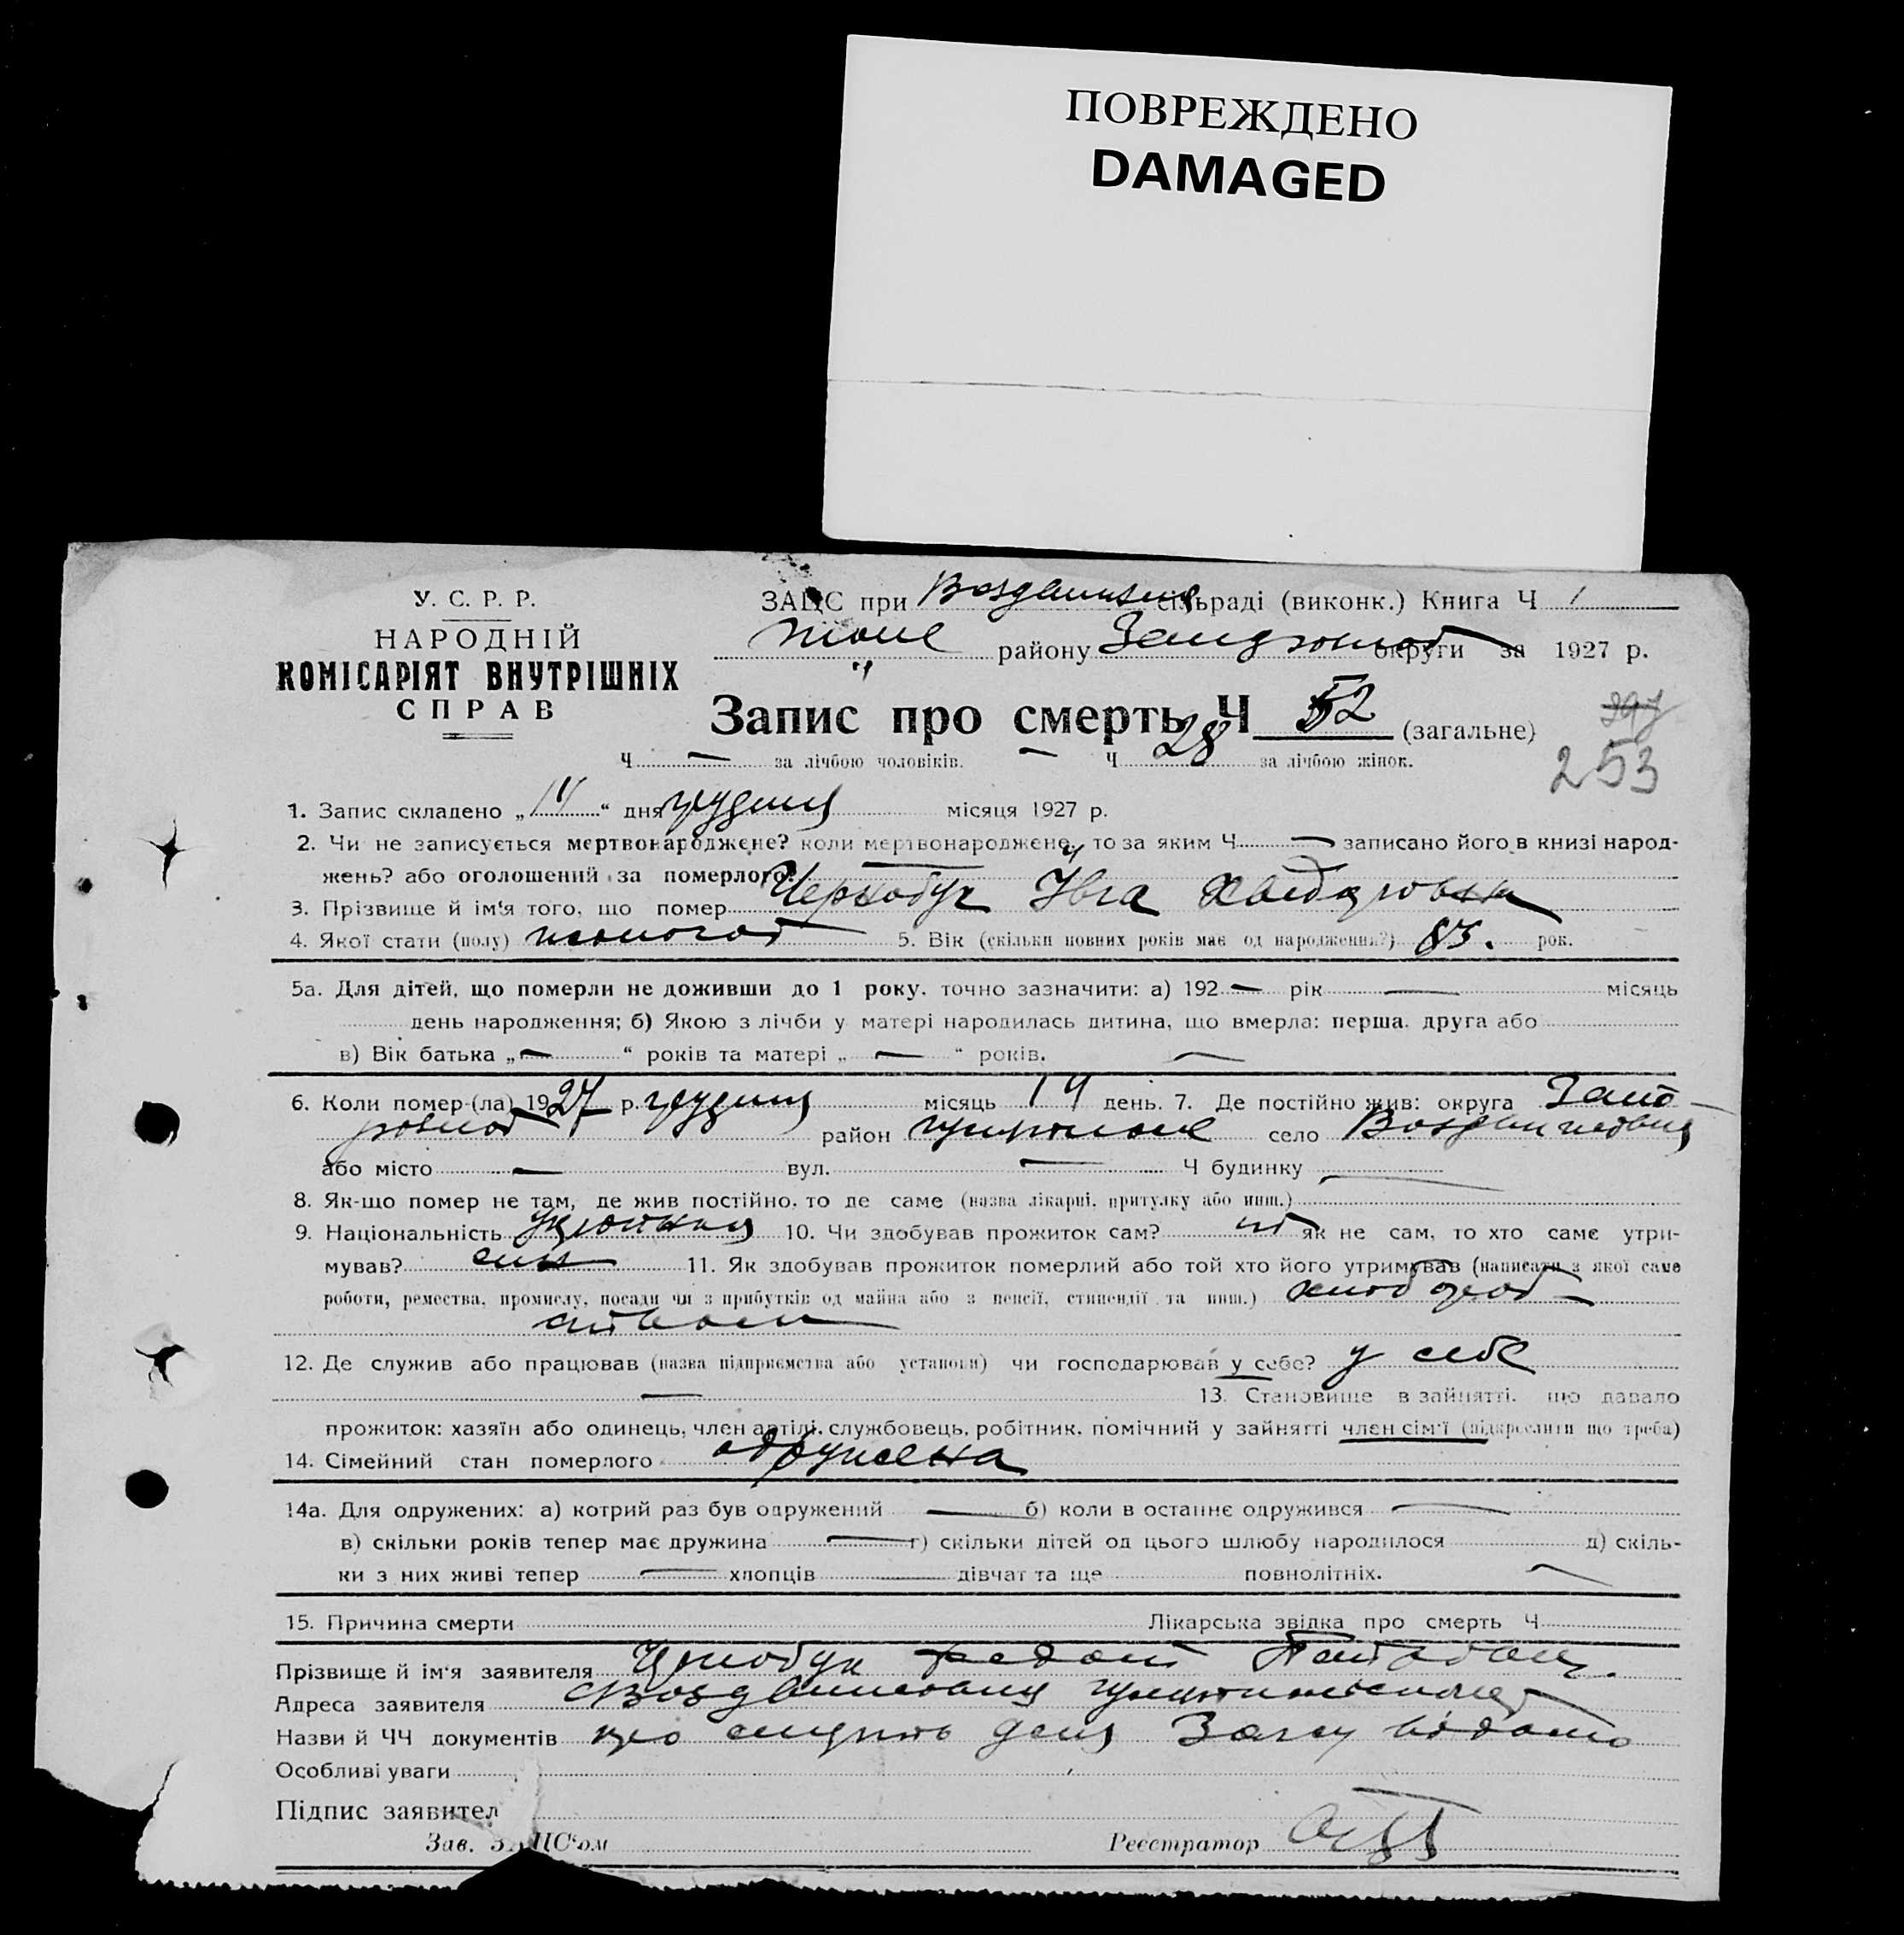 ПОВРЕЖДЕНО
DAMAGED
У. С. Р. Р.
НАРОДНІЙ
КОМІСАРІЯТ ВНУТРІШНІХ
СПРАВ
ЗАЦС при сільраді (виконк.) Книга Ч 1
району округи за 1927 р.
Запис про смерть Ч 52 (загальне)
397
253
Ч — за лічбою чоловіків. — Ч 28 за лічбою жінок.
1. Запис складено „14“ дня грудня місяця 1927 р.
2. Чи не записується мертвонароджене? коли мертвонароджене, то за яким Ч — записано його в книзі народ-
жень? або оголошений за померлого?
3. Прізвище й ім'я того, що помер Чернобук Івга
4. Якої стати (полу) 5. Вік (скільки повних років має од народження?) 85. рок.
5а. Для дітей, що померли не доживши до 1 року, точно зазначити: а) 192 — рік — місяць
день народження; б) Якою з лічби у матері народилась дитина, що вмерла: перша, друга або
в) Вік батька „—“ років та матері „—“ років. —
6. Коли помер-(ла) 1927 р. грудня місяць 14 день. 7. Де постійно жив: округа Запо-
район село
або місто — вул. — Ч будинку —
8. Як-що помер не там, де жив постійно, то де саме (назва лікарні, притулку або инш.)
9. Національність українка 10. Чи здобував прожиток сам? ні як не сам, то хто саме утри-
мував? син 11. Як здобував прожиток померлий або той хто його утримував (написати з якої саме
роботи, ремества, промислу, посади чи з прибутків од майна або з пенсії, стипендії та инш.)
12. Де служив або працював (назва підприємства або установи) чи господарював у себе? у себе
— 13. Становище в зайнятті, що давало
прожиток: хазяїн або одинець, член артілі, службовець, робітник, помічний у зайнятті член сім'ї (підкреслити що треба)
14. Сімейний стан померлого одружена
14а. Для одружених: а) котрий раз був одружений — б) коли в останнє одружився —
в) скільки років тепер має дружина — г) скільки дітей од цього шлюбу народилося д) скіль-
ки з них живі тепер — хлопців — дівчат та ще повнолітніх. —
15. Причина смерти Лікарська звідка про смерть Ч
Прізвище й ім'я заявителя
Адреса заявителя
Назви й ЧЧ документів про смерть для Загсу видано
Особливі уваги
Підпис заявител
Зав. ЗАЦС'ом Реєстратор